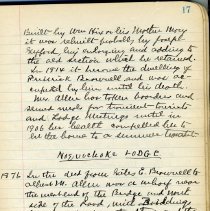 17
Built by Wm Hix or his Mother Mary
it was rebuilt probably by Joseph
Gifford by enlarging and adding to
the old section which he retained.
In 1914 it became the dwelling of
Frederick Brownell and was oc-
cupied by him until his death.
Mrs Allen has taken boarders and
served meals for transient tourists
and Lodge Meetings until in
1906 her health compelled her to
let the house to a summer tenant
NOQUOCHOKE LODGE
1876 In the deed from Giles E Brownell to
Albert M. Allen was a wharf near
the west end of the Bridge and north
side of the Road, with Buildings